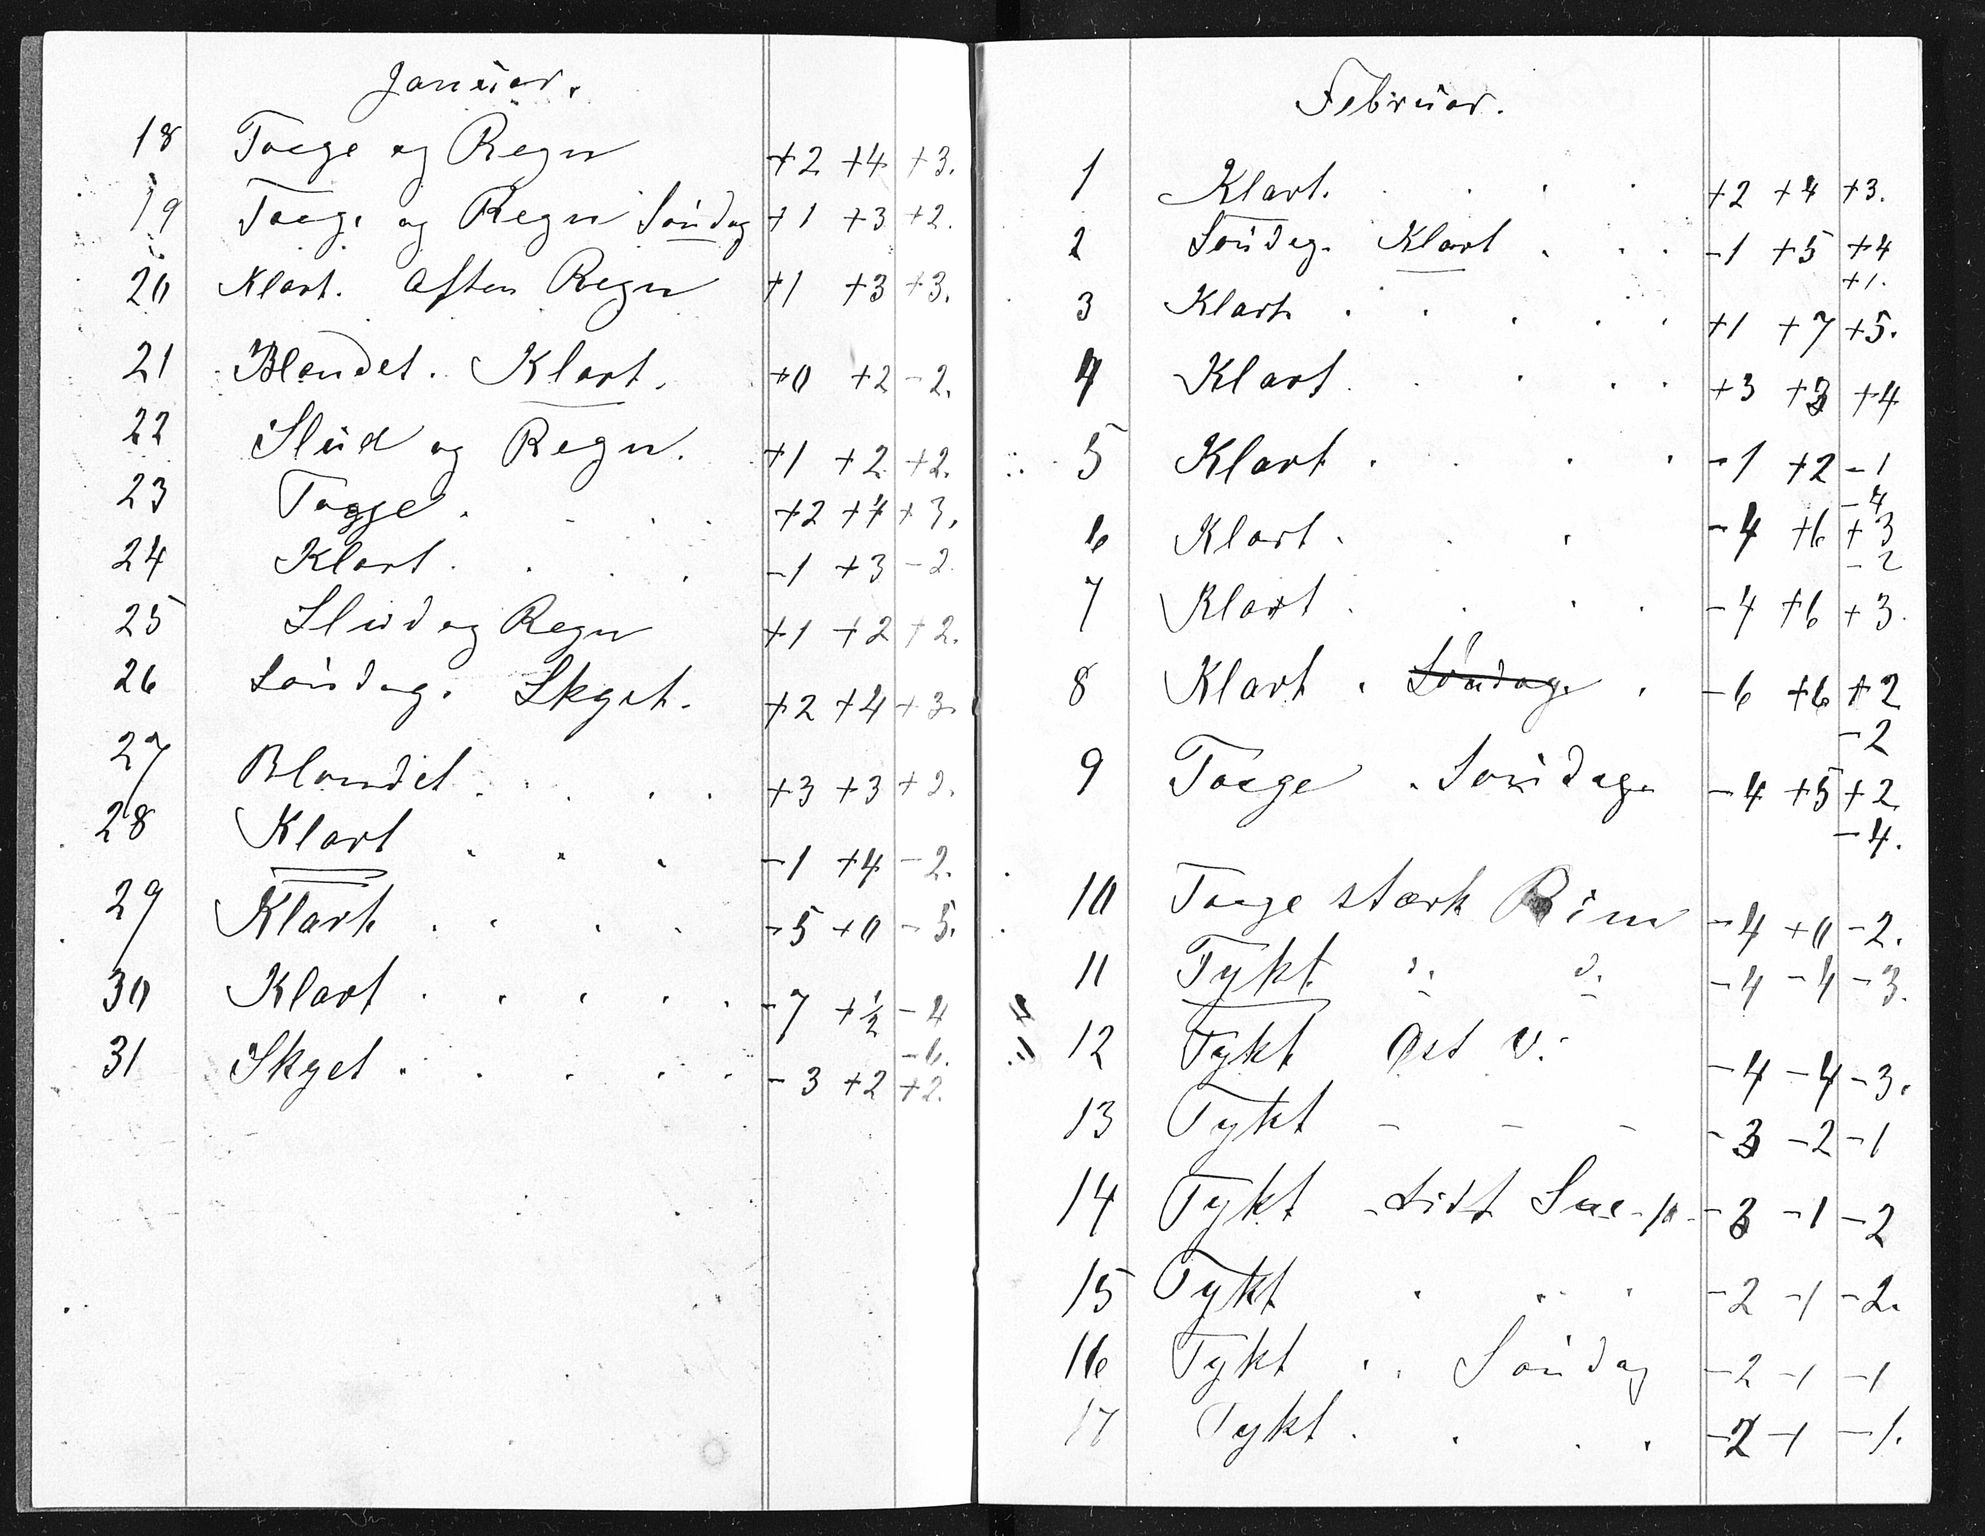 Januar.
18 Taage og Regn +2 +4 +3.
19 Taage og Regn Søndag +1 +3 +2.
20 Klart. Aften Regn +1 +3 +3.
21 Blandet. Klart. +0 +2 -2.
22 Slud og Regn. +1 +2 +2.
23 Tagge. +2 +4 +3.
24 Klart. -1 +3 -2.
25 Slud og Regn +1 +2 +2.
26 Søndag. Skyet. +2 +4 +3.
27 Blandet. +3 +3 +2.
28 Klart -1 +4 -2.
29 Klart. -5 +0 -5.
30 Klart -7 +½ -4
-6.
31 Skyet. -3 +2 +2.
Februar.
1 Klart. +2 +4 +3.
2 Søndag. Klart -1 +5 +4
+1.
3 Klart. +1 +7 +5.
4 Klart. +3 +3 +4
5 Klart. -1 +2 -1
-4
6 Klart. -4 +6 +3
-2
7 Klart. -4 +6 +3.
8 Klart. Søndag. -6 +6 +2
-2
9 Taage. Søndag. -4 +5 +2
-4.
10 Taage stærk Rim -4 +0 -2.
11 Tykt. -4 -4 -3.
12 Tykt Øst V. -4 -4 -3.
13 Tykt - - - -3 -2 -1
14 Tykt - Lidt Sne - -3 -1 -2
15 Tykt -2 -1 -2.
16 Tykt Søndag -2 -1 -1
17 Tykt. -2 -1 -1.